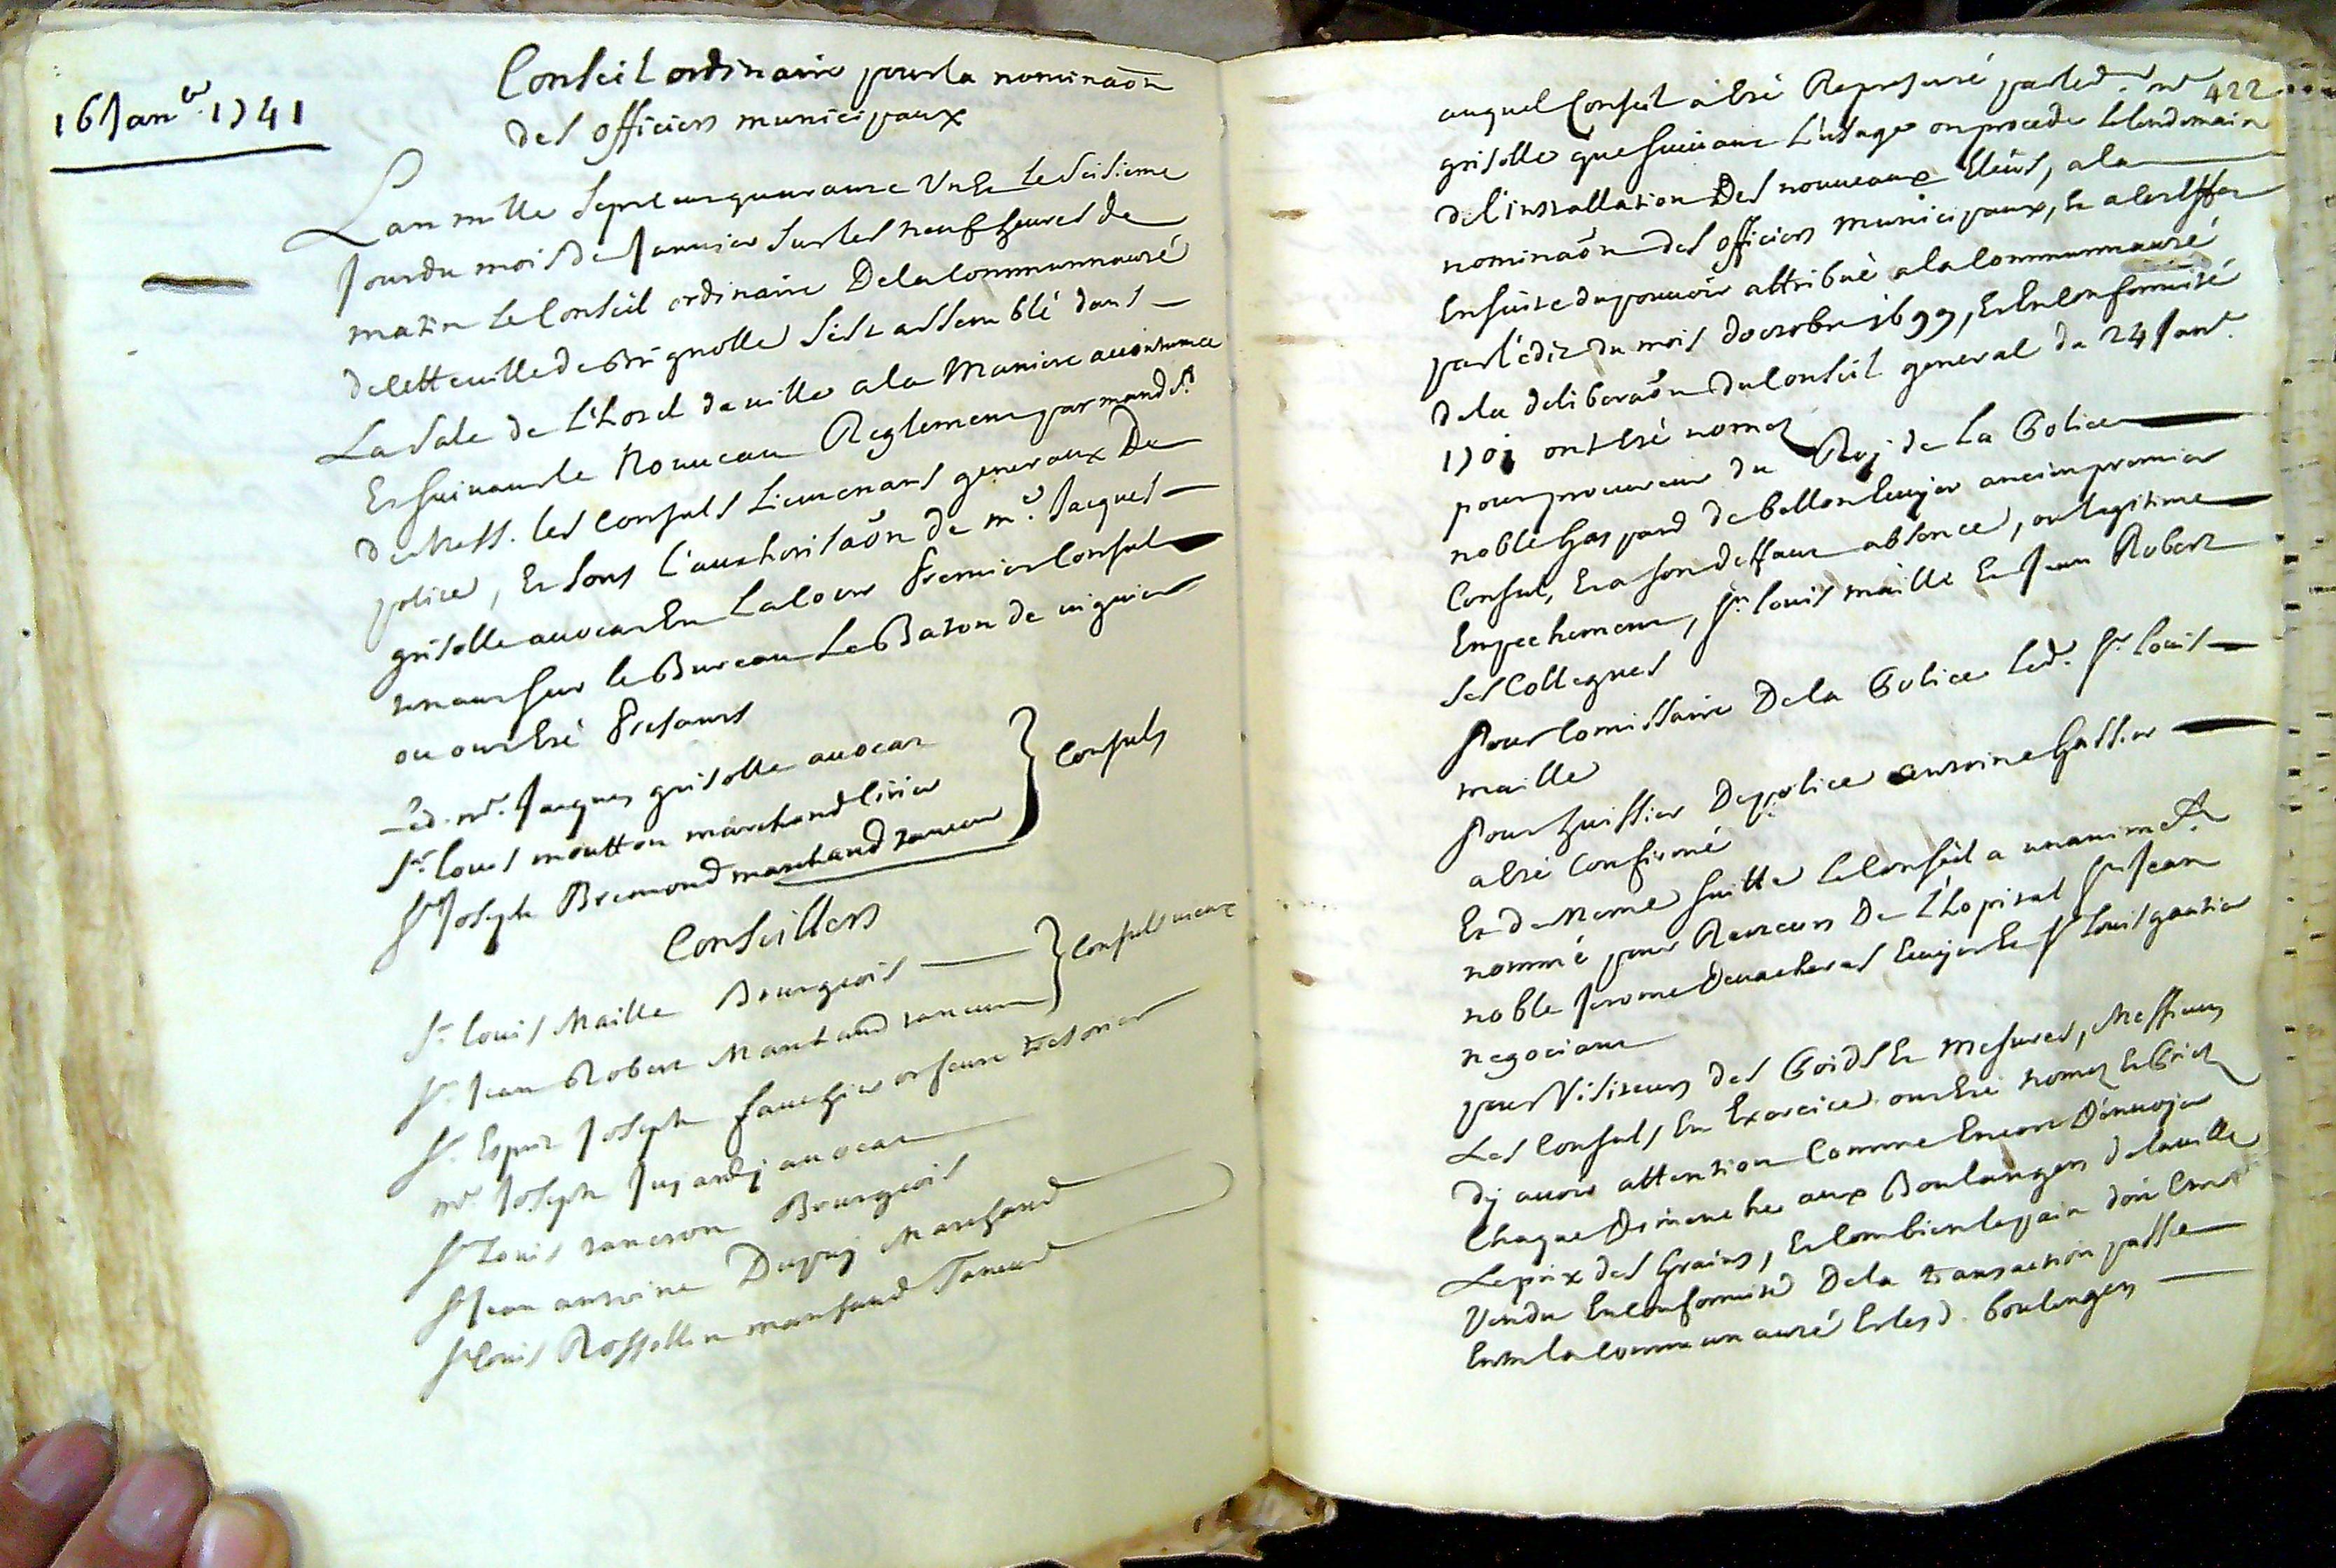 16 Janer. 1741
Conseil ordinaire pour la nominaōn
des officiers municipaux
Lan mille Sept cens quarante Un Et Le Seisieme
Jour du mois de Janvier Sur les neuf heures de
matin Le Conseil ordinaire De la Communnauté
de cette ville de Brignolle Sest assemblé dans
La Sale de L'hotel de ville a la Maniere accoutumée
Et suivant le Nouveau Reglement par mandt.
de Mess. les Consuls Lieutenans generaux De
police, Et Sous l'authorisaōn de mr. Jacques
grisolle avocat En La Cour Premier Consul
tenant sur le Bureau Le Baton de viguier
ou ont Eté Presants
Led. mr. Jacques grisolle avocat
Sr. Louis moutton marchand cirier
Sr Joseph Bremond marchand taneur
Consuls
Conseillers
Sr. Louis Maille Bourgeois
Sr. Jean Robert Marchand taneur
Consuls vieux
Sr. Esprit Joseph fauchier orfeure tresorier
mr Joseph Jujardy avocat
Sr Louis taneron Bourgeois
Sr Jean antoine Dupuy Marchand
Sr Louis Rossollin marchand Taneur
422
auquel Conseil a Eté Representé par led. mr
grisolle que suivant L'usage on procede le lendemain
de l'installation Des nouveaux Eleûs, a la
nominaōn des officiers municipaux, Et a cet Effet
Ensuite du pouvoir attribué a la Communnauté
par l'edit du mois doctobre 1699, Et En conformité
de la deliberaōn du Conseil general du 24 Janr.
1701 ont Eté nomez
pour procureur du Roy de La Police
noble Gaspard de bellon Ecuyer ancien premier
Consul, Et a son deffaut absence, ou legitime
Empechement, Sr. Louis maille Et Jean Robert
ses Collegues
Pour Comissaire De la Police Led. Sr. Louis
maille
Pour huissier De police antoine Gassier
a Eté Confirmé
Et de Meme suitte Le Conseil a unanimet.
nommé pour Recteurs De L'hopital Sr Jean
noble Jerome Devacheres Ecuyer Et Sr Louis gautier
negociant
pour Visiteurs des Poids Et Mesures, Messieurs
Les Consuls En Exercice ont Eté nomez Et Priez
dy avoir attention Comme Encore D'envoyer
Chaque Dimanche aux Boulangers de la ville
Le prix des Grains, Et Combien le pain doit Etre
Vendu En conformité De la transaction passée
Entre la Communauté Et lesd. boulangers